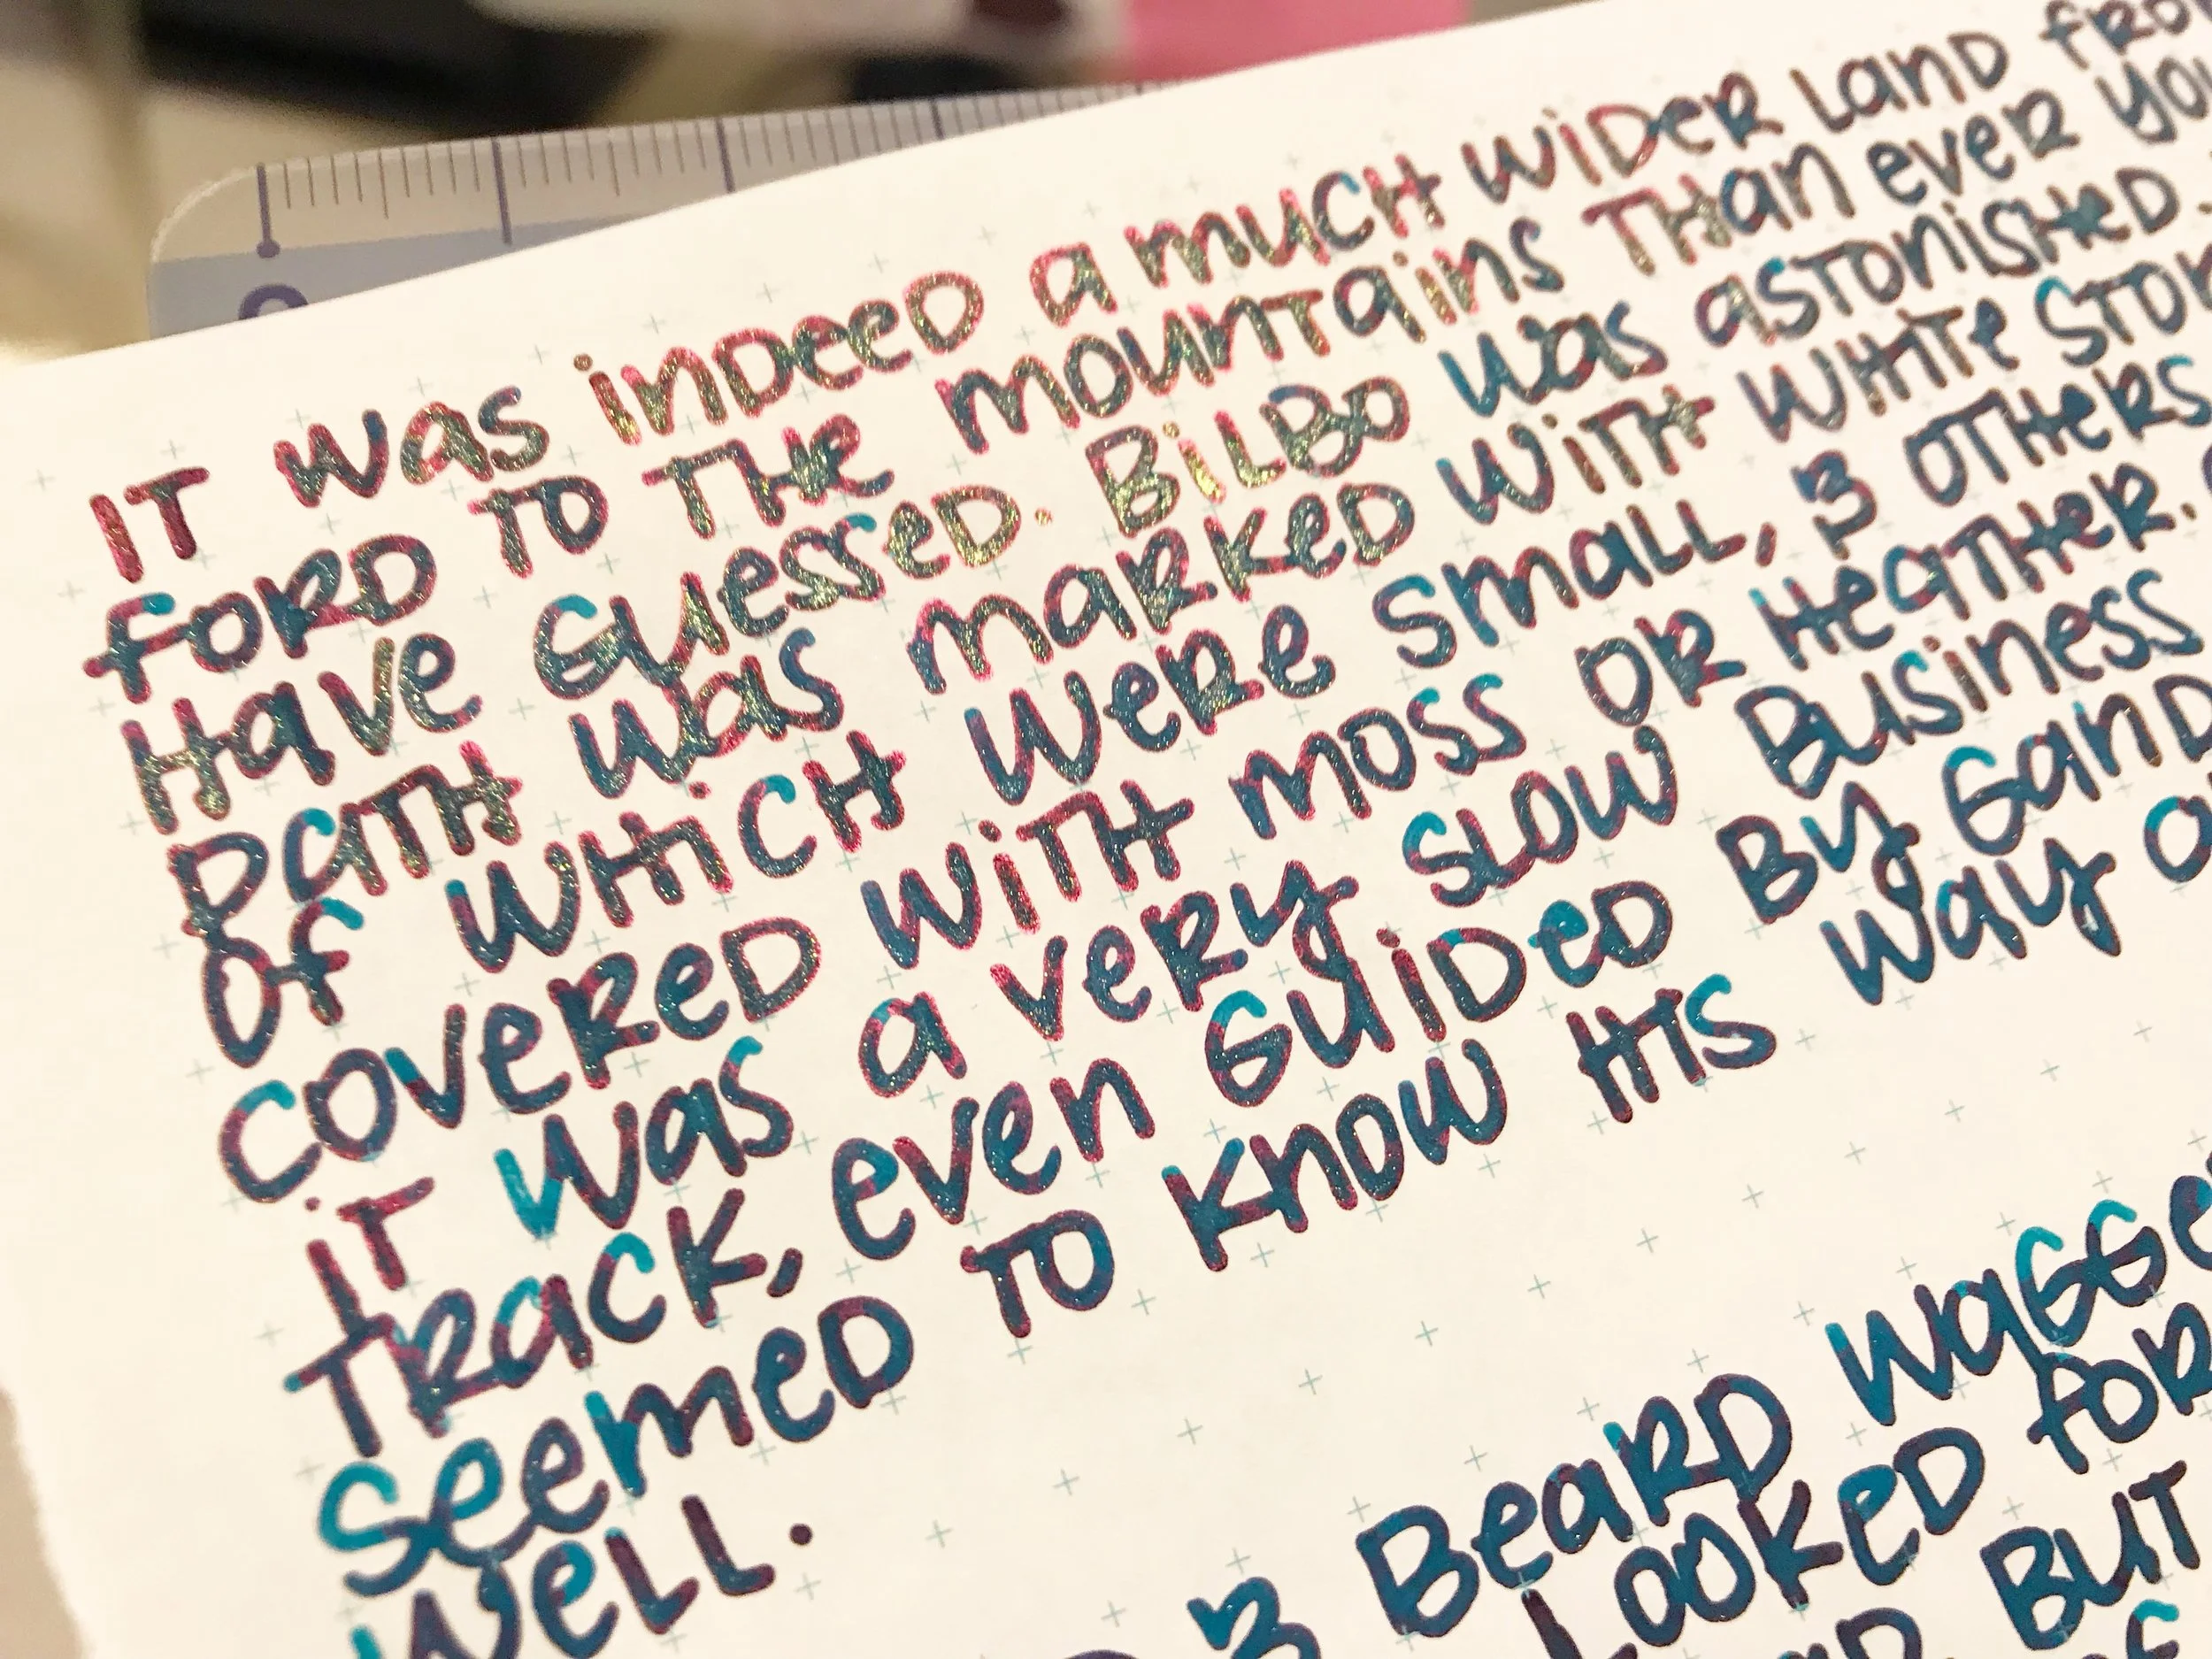 IT was indeed a much wider land
ford to the mountains than ever
have guessed. Bilbo was astonished.
path was marked with white
of which were small, & others
covered with moss or heather.
it was a very slow business
track, even guided by
seemed to know his way
well.
& beard
looked
but
0